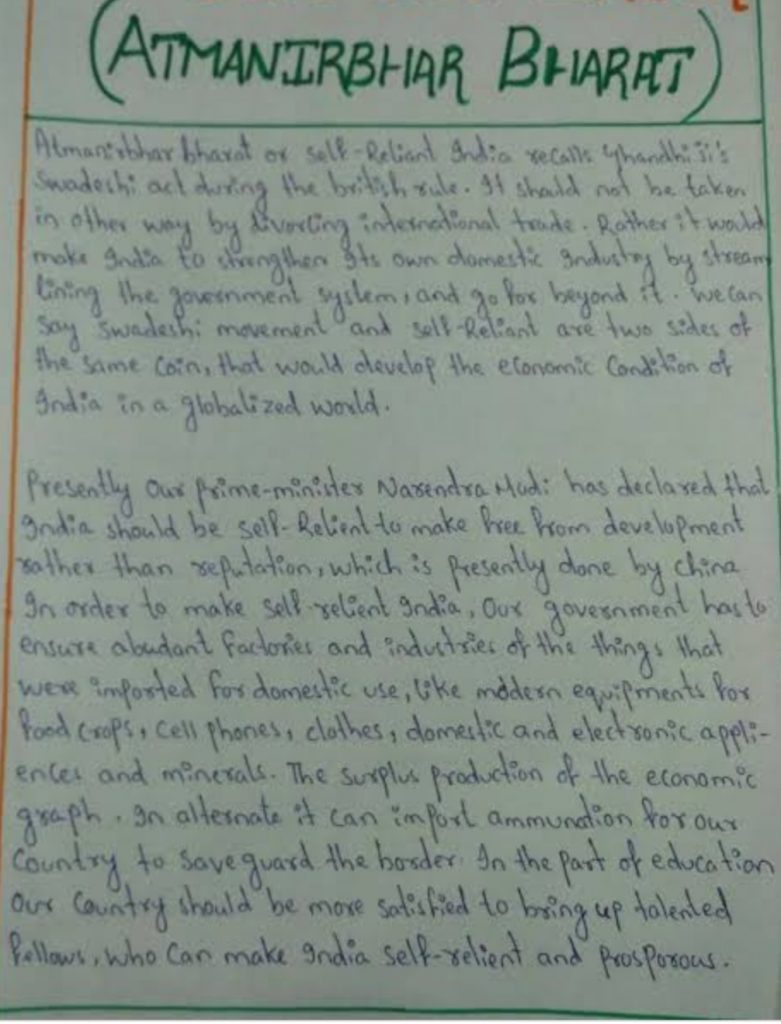 (ATMANIRBHAR BHARAT)
Atmanirbhar bharat or self-Reliant India recalls Ghandhi Ji's
Swadeshi act during the british rule. It should not be taken
in other way by divorcing international trade. Rather it would
make India to strengthen Its own domestic Industry by stream
lining the government system, and go for beyond it. We can
say swadeshi movement and self-Reliant are two sides of
the same coin, that would develop the economic Condition of
India in a globalized world.
Presently Our prime-minister Narendra Modi has declared that
India should be self-Relient to make free from development
rather than reputation, which is presently done by china
In order to make self-relient India, Our government has to
ensure abudant factories and industries of the things that
were imported for domestic use, like modern equipments for
food crops, cell phones, clothes, domestic and electronic appli-
ences and minerals. The surplus production of the economic
graph. In alternate it can import ammunation for our
Country to save guard the border. In the part of education
Our Country should be more satisfied to bring up talented
fellows, who Can make India self-relient and prosporous.